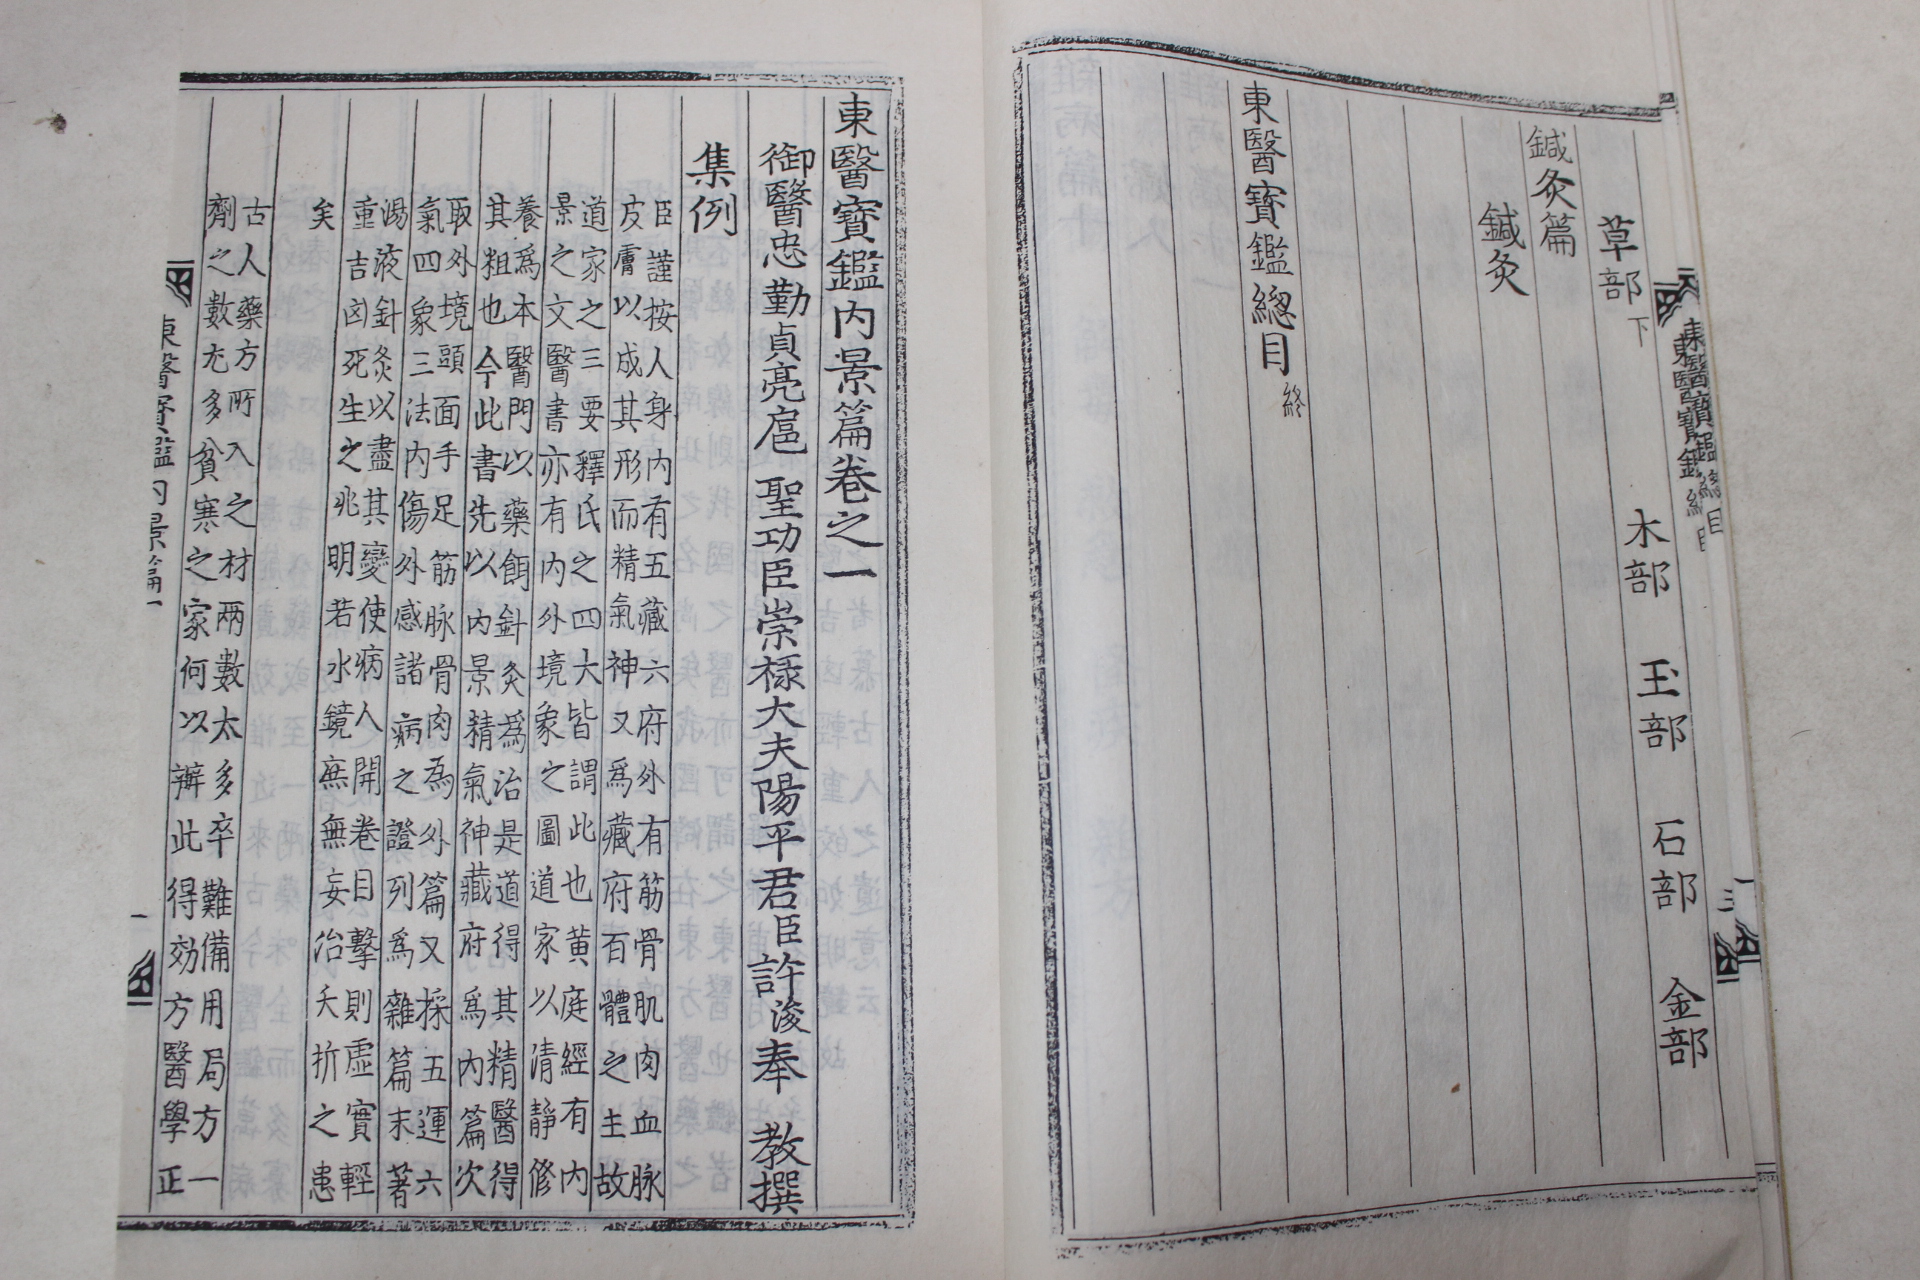 東醫寶鑑 總目
三
草部下 木部 玉部 石部 金部
鍼灸篇
鍼灸
東醫寶鑑總目終
東醫寶鑑內景篇卷之一
御醫忠勤貞亮扈聖功臣崇祿大夫陽平君臣許浚奉 敎撰
集例
臣謹按人身內有五藏六府外有筋骨肌肉血脉
皮膚以成其形而精氣神又爲藏府百體之主故
道家之三要釋氏之四大皆謂此也黃庭經有內
景之文醫書亦有內外境象之圖道家以清靜修
養爲本醫門以藥餌針灸爲治是道得其精醫得
其粗也今此書先以內景精氣神藏府爲內篇次
取外境頭面手足筋脉骨肉為外篇又採五運六
氣四象三法內傷外感諸病之證列爲雜篇末著
湯液針灸以盡其變使病人開卷目擊則虛實輕
重吉凶死生之兆明若水鏡庶無妄治夭折之患
矣
古人藥方所入之材兩數太多卒難備用局方一
劑之數尤多貧寒之家何以辦此得効方醫學正
東醫寶鑑內景篇一